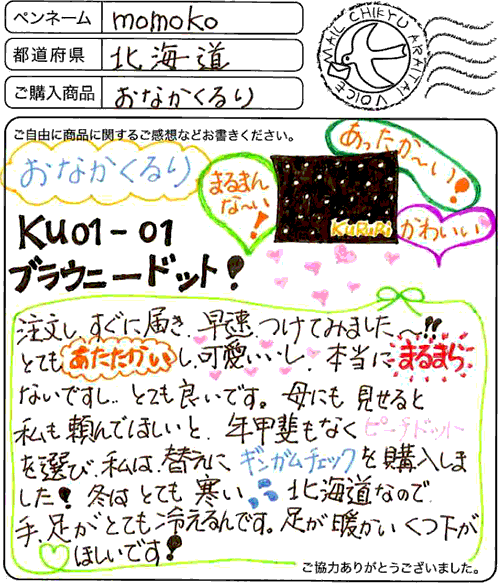 ペンネーム momoko
都道府県 北海道
ご購入商品 おなかくるり
MAIL CHIKYU ARAITAI VOICE
ご自由に商品に関するご感想などお書きください。
おなかくるり
まるまんな〜い!
あったか〜い!
KURURi
かわいい
KU01-01
ブラウニードット!
注文し、すぐに届き、早速、つけてみました〜!!
とてもあたたかいし、可愛いいし、本当にまるまら
ないですし、とても良いです。母にも見せると
私も頼んでほしいと、年甲斐もなくピーチドット
を選び、私は、替えにギンガムチェックを購入しま
した!冬はとても寒い北海道なので、
手、足がとても冷えるんです。足が暖かいくつ下が
ほしいです!
ご協力ありがとうございました。